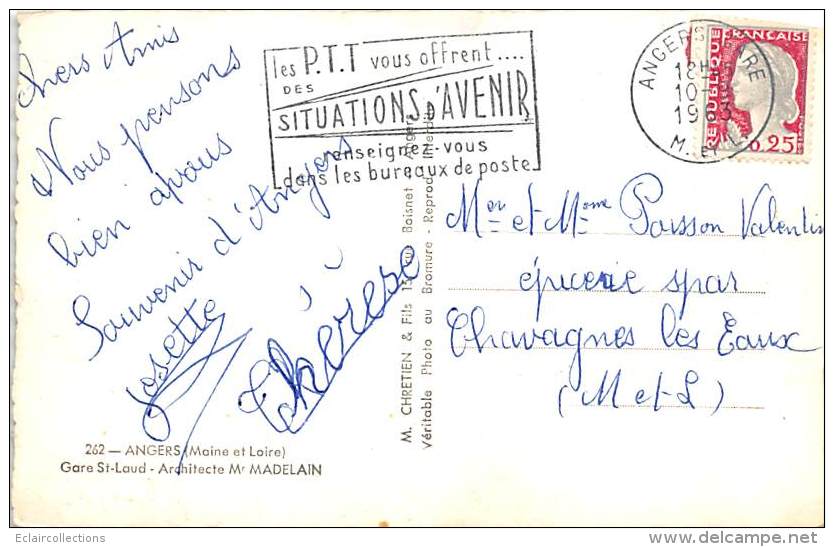 chers Amis
Nous pensons
bien à vous
Souvenir d'Angers
Josette
Thérèse
les P.T.T vous offrent....
DES
SITUATIONS D'AVENIR
renseignez-vous
dans les bureaux de poste
ANGERS GARE
18H
10-
1963
M. ET L.
REPUBLIQUE FRANCAISE
0,25
M. CHRETIEN & Fils Rue Boisnet Angers
Véritable Photo au Bromure - Reprod. Interdite
Meur et Mme Poisson Valentin
épicerie spar
Chavagnes les Eaux
(M et L)
262 — ANGERS (Maine et Loire)
Gare St-Laud - Architecte Mr MADELAIN
Eclaircollections
www.delcampe.net